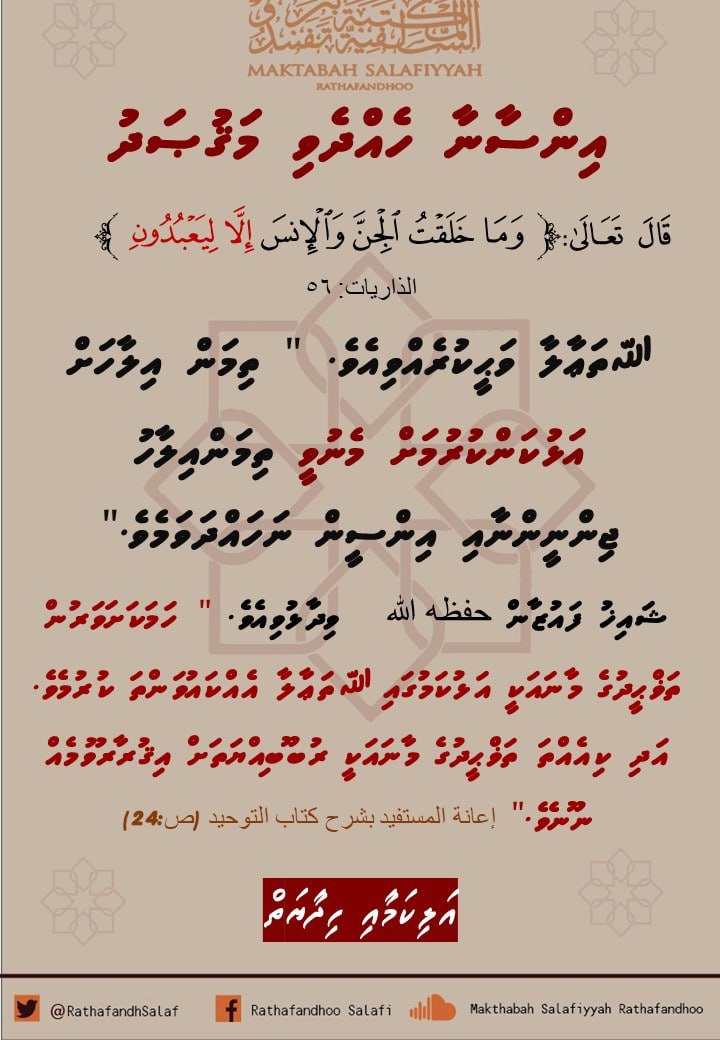 المكتبة
السلفية
MAKTABAH SALAFIYYAH
RATHAFANDHOO
އިންސާނާ ހެއްދެވި މަޤުޞަދު
قَالَ تَعَالَىٰ: ﴿ وَمَا خَلَقْتُ ٱلْجِنَّ وَٱلْإِنسَ إِلَّا لِيَعْبُدُونِ ﴾
الذاريات: ٥٦
ﷲތަޢާލާ ވަޙީކުރެއްވިއެވެ. " ތިމަން އިލާހަށް
އަޅުކަންކުރުމަށް މެނުވީ ތިމަންއިލާހު
ޖިންނީންނާއި އިންސީން ނަހައްދަވަމެވެ."
ޝައިޚު ފައުޒާން حفظه الله ވިދާޅުވިއެވެ. " ހަމަކަށަވަރުން
ތަޥްޙީދުގެ މާނައަކީ އަޅުކަމުގައި ﷲތަޢާލާ އެއްކައުވަންތަ ކުރުމެވެ.
އަދި ކިއެއްތަ ތަޥްޙީދުގެ މާނައަކީ ރުބޫބިއްޔަތަށް އިޤުރާރުވުމެއް
ނޫނެވެ." إعانة المستفيد بشرح كتاب التوحيد (ص:24)
އަލިކަމާއި ހިދާޔަތް
@RathafandhSalaf
Rathafandhoo Salafi
Makthabah Salafiyyah Rathafandhoo